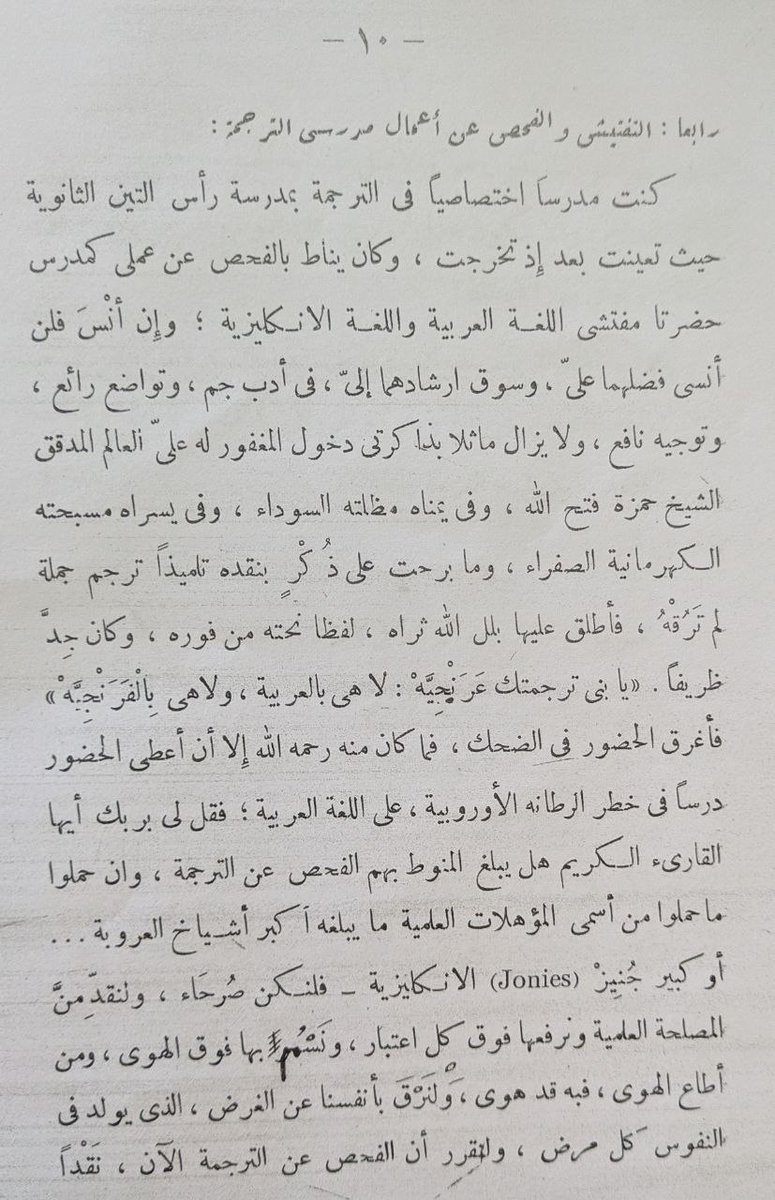 — ١٠ —
رابعا : التفتيش و الفحص عن أعمال مدرسى الترجمة :
كنت مدرساً اختصاصياً فى الترجمة بمدرسة رأس التين الثانوية
حيث تعينت بعد إذ تخرجت ، وكان يناط بالفحص عن عملى كمدرس
حضرتا مفتشى اللغة العربية واللغة الانكليزية ؛ وإن أنْسَ فلن
أنسى فضلهما علىّ ، وسوق ارشادهما إلىّ ، فى أدب جم ، وتواضع رائع ،
وتوجيه نافع ، ولا يزال ماثلا بذاكرتى دخول المغفور له علىّ العالم المدقق
الشيخ حمزة فتح الله ، وفى يمناه مظلته السوداء ، وفى يسراه مسبحته
الكهرمانية الصفراء ، وما برحت على ذُكْرٍ بنقده تلميذاً ترجم جملة
لم تَرُقْهُ ، فأطلق عليها بلل الله ثراه ، لفظا نحته من فوره ، وكان جِدَّ
ظريفاً . «يا بنى ترجمتك عَرَنْجِيَّهْ : لا هى بالعربية ، ولاهى بِالْفَرَنْجِيَّهْ»
فأغرق الحضور فى الضحك ، فما كان منه رحمه الله إلا أن أعطى الحضور
درساً فى خطر الرطانه الأوروبية ، على اللغة العربية ؛ فقل لى بربك أيها
القارىء الكريم هل يبلغ المنوط بهم الفحص عن الترجمة ، وان حملوا
ماحملوا من أسمى المؤهلات العلمية ما يبلغه أكبر أشياخ العروبة ...
أو كبير جُنِيزْ (Jonies) الانكليزية ــ فلنكن صُرحَاء ، ولنقدِّمنَّ
المصلحة العلمية ونرفعها فوق كل اعتبار ، ونَسْمُ بها فوق الهوى ، ومن
أطاع الهوى ، فبه قد هوى ، وْلنَرْقَ بأنفسنا عن الغرض ، الذى يولد فى
النفوس كل مرض ، ولنقرر أن الفحص عن الترجمة الآن ، نَقْداً